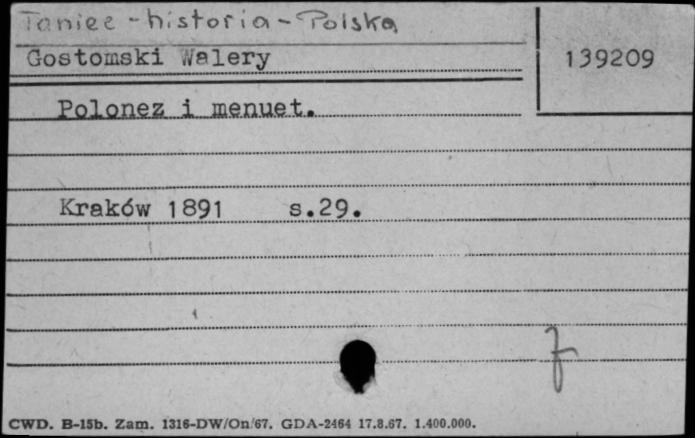 Taniec - historia - Polska
Gostomski Walery
139209
Polonez i menuet.
Kraków 1891 s.29.
CWD. B-15b. Zam. 1316-DW/On/67. GDA-2464 17.8.67. 1.400.000.